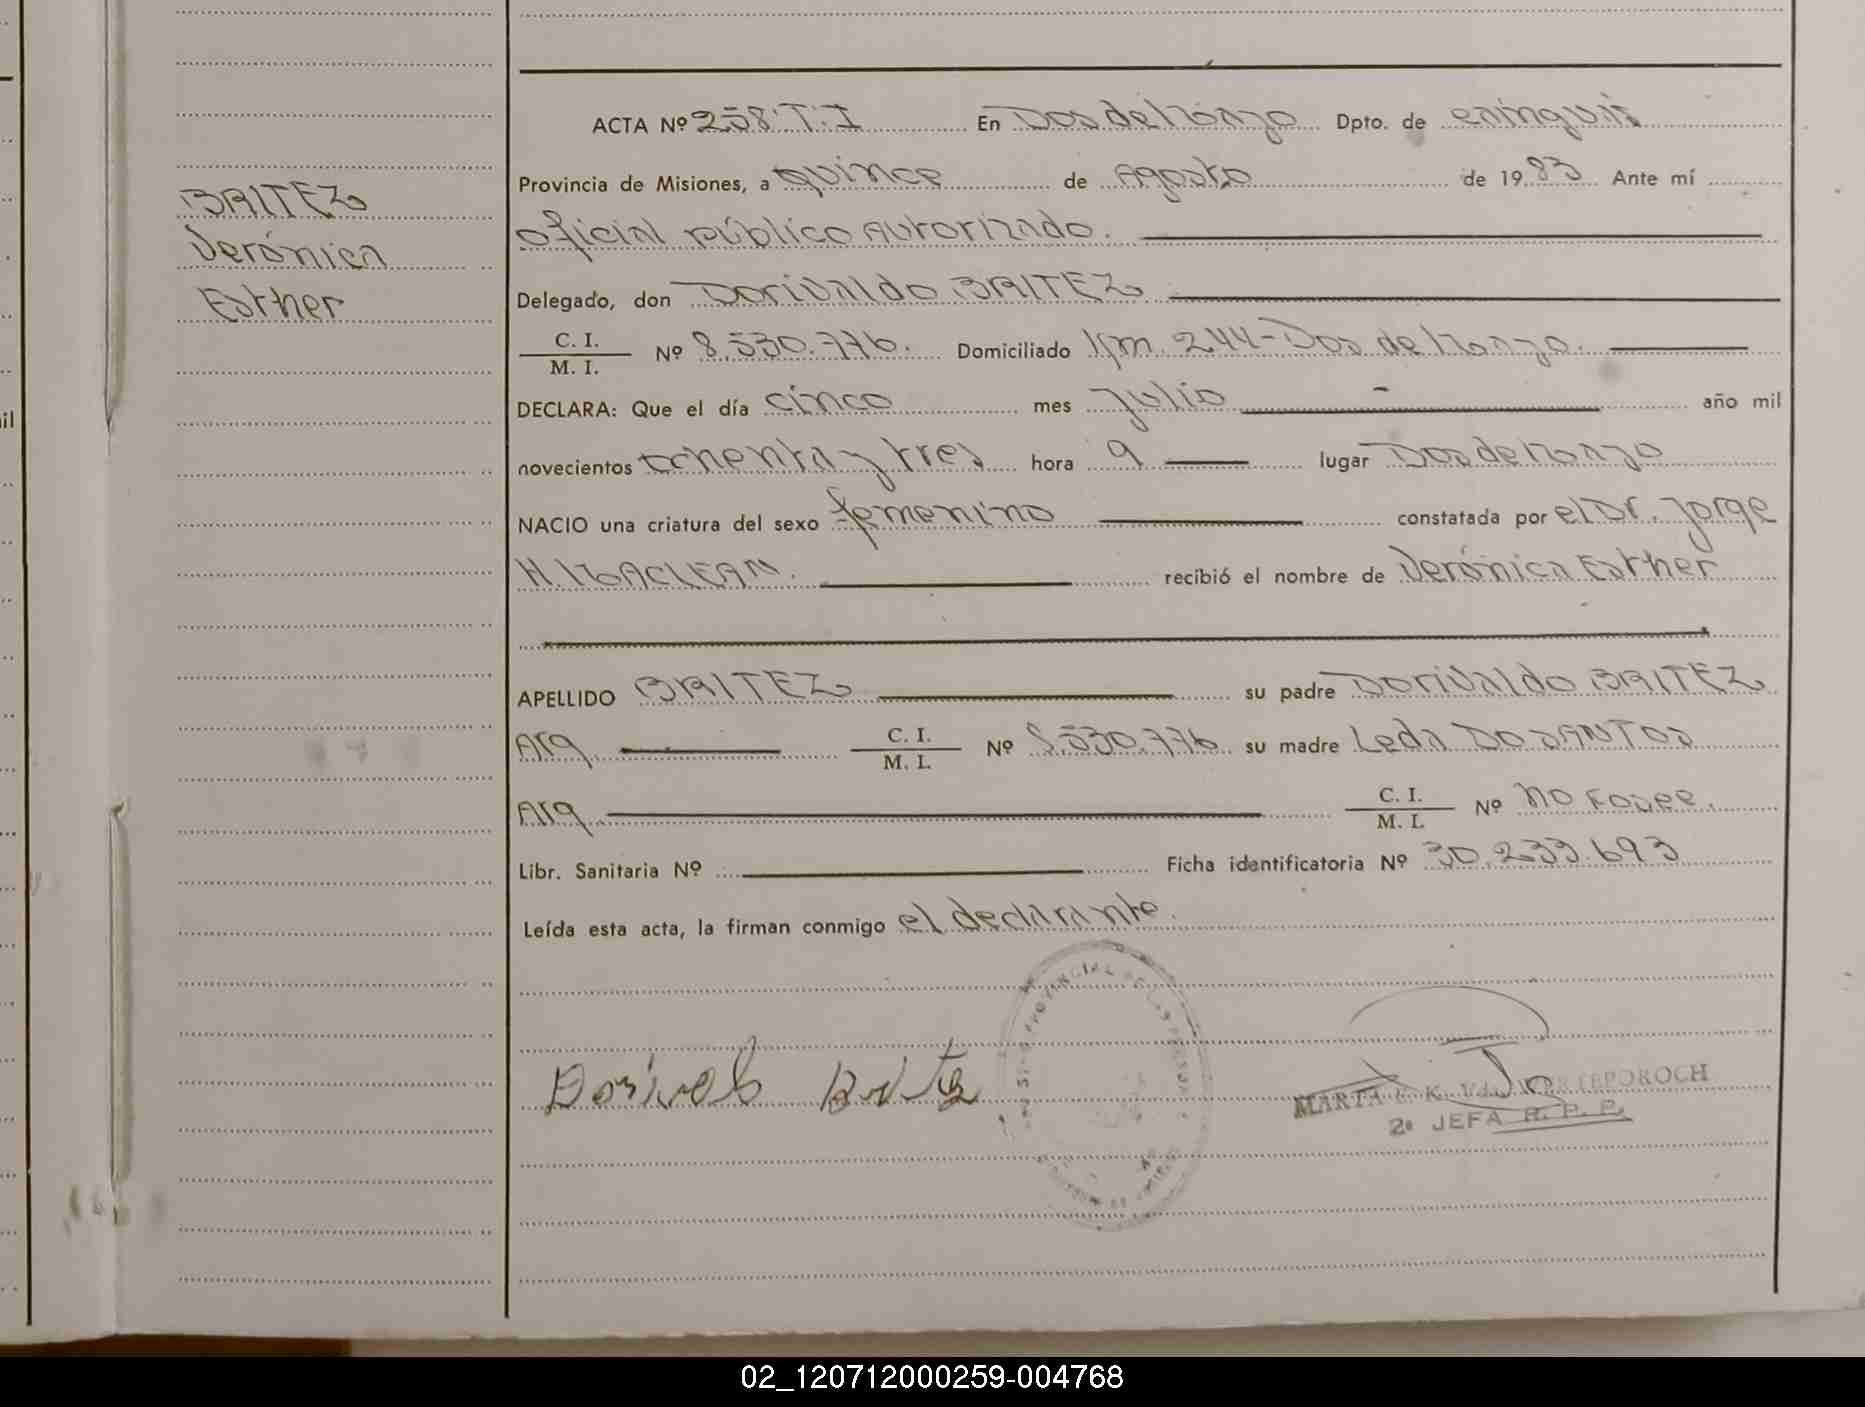 ACTA Nº 258.T.I En Dos de Mayo Dpto. de
Provincia de Misiones, a quince de Agosto de 1983 Ante mí
oficial público Autorizado.
BRITEZ
Verónica
Esther
Delegado, don Dorivaldo BRITEZ
C. I.
M. I. Nº 8.530.776. Domiciliado Km. 244-Dos de Mayo.
DECLARA: Que el día cinco mes Julio año mil
novecientos ochenta y tres hora 9 lugar Dos de Mayo
NACIO una criatura del sexo femenino constatada por el Dr. Jorge
H. recibió el nombre de Verónica Esther
APELLIDO BRITEZ su padre Dorivaldo BRITEZ
Arg. C. I.
M. I. Nº 8.530.776 su madre Leda DO SANTOS
Arg. C. I.
M. I. Nº no posee.
Libr. Sanitaria Nº Ficha identificatoria Nº 30.233.693
Leída esta acta, la firman conmigo el declarante.
PROVINCIAL DE LAS PERSONAS
MARTA K. Vda.
2º JEFA R. P. P.
02_120712000259-004768